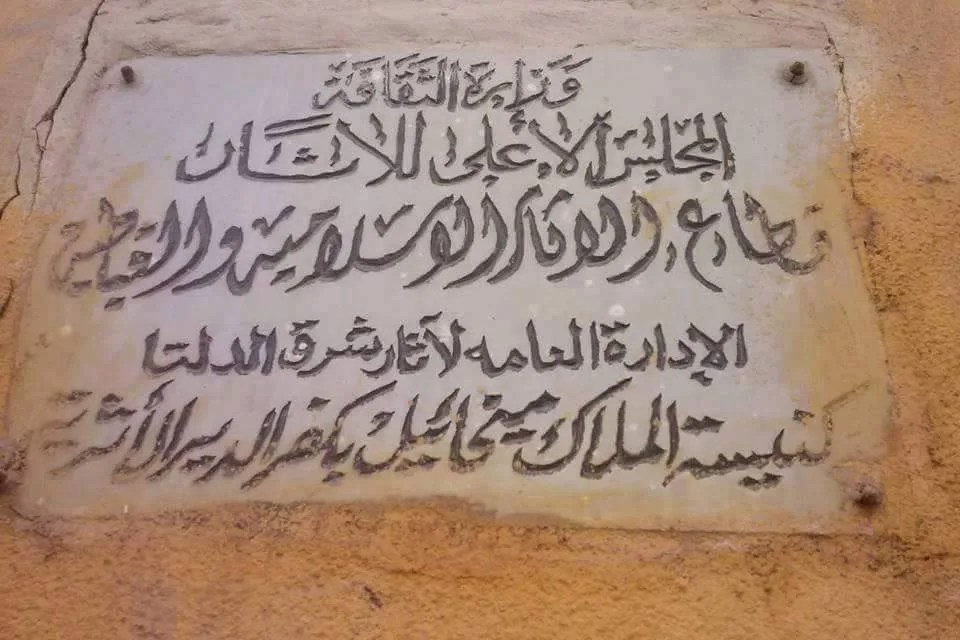 وَزارة الثَقَافَة
المجلس الاعلى للاثار
قطاع الاثار الاسلاميه والقبطيه
الإدارة العامه لآثار شرق الدلتا
كنيسة الملاك ميخائيل بكفر الدير الأثرية